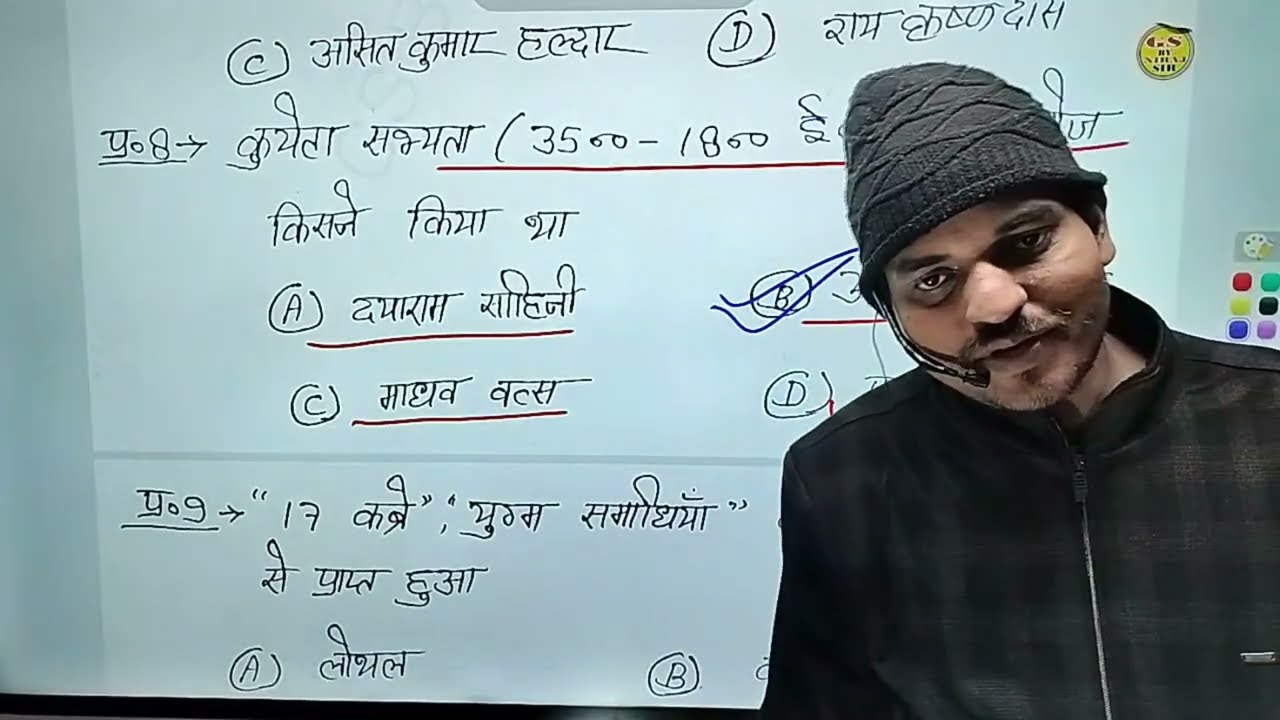 (C) असित कुमार हल्दार (D) राय कृष्ण दास
प्र०8→ कुयेटा सभ्यता ( 3500 - 1800 ई
किसने किया था
(A) दयाराम साहिनी (B)
(C) माधव वत्स (D)
प्र०9→ "17 कब्रे", "युग्म समाधियाँ"
से प्राप्त हुआ
(A) लोथल (B)
GS
BY
SIR